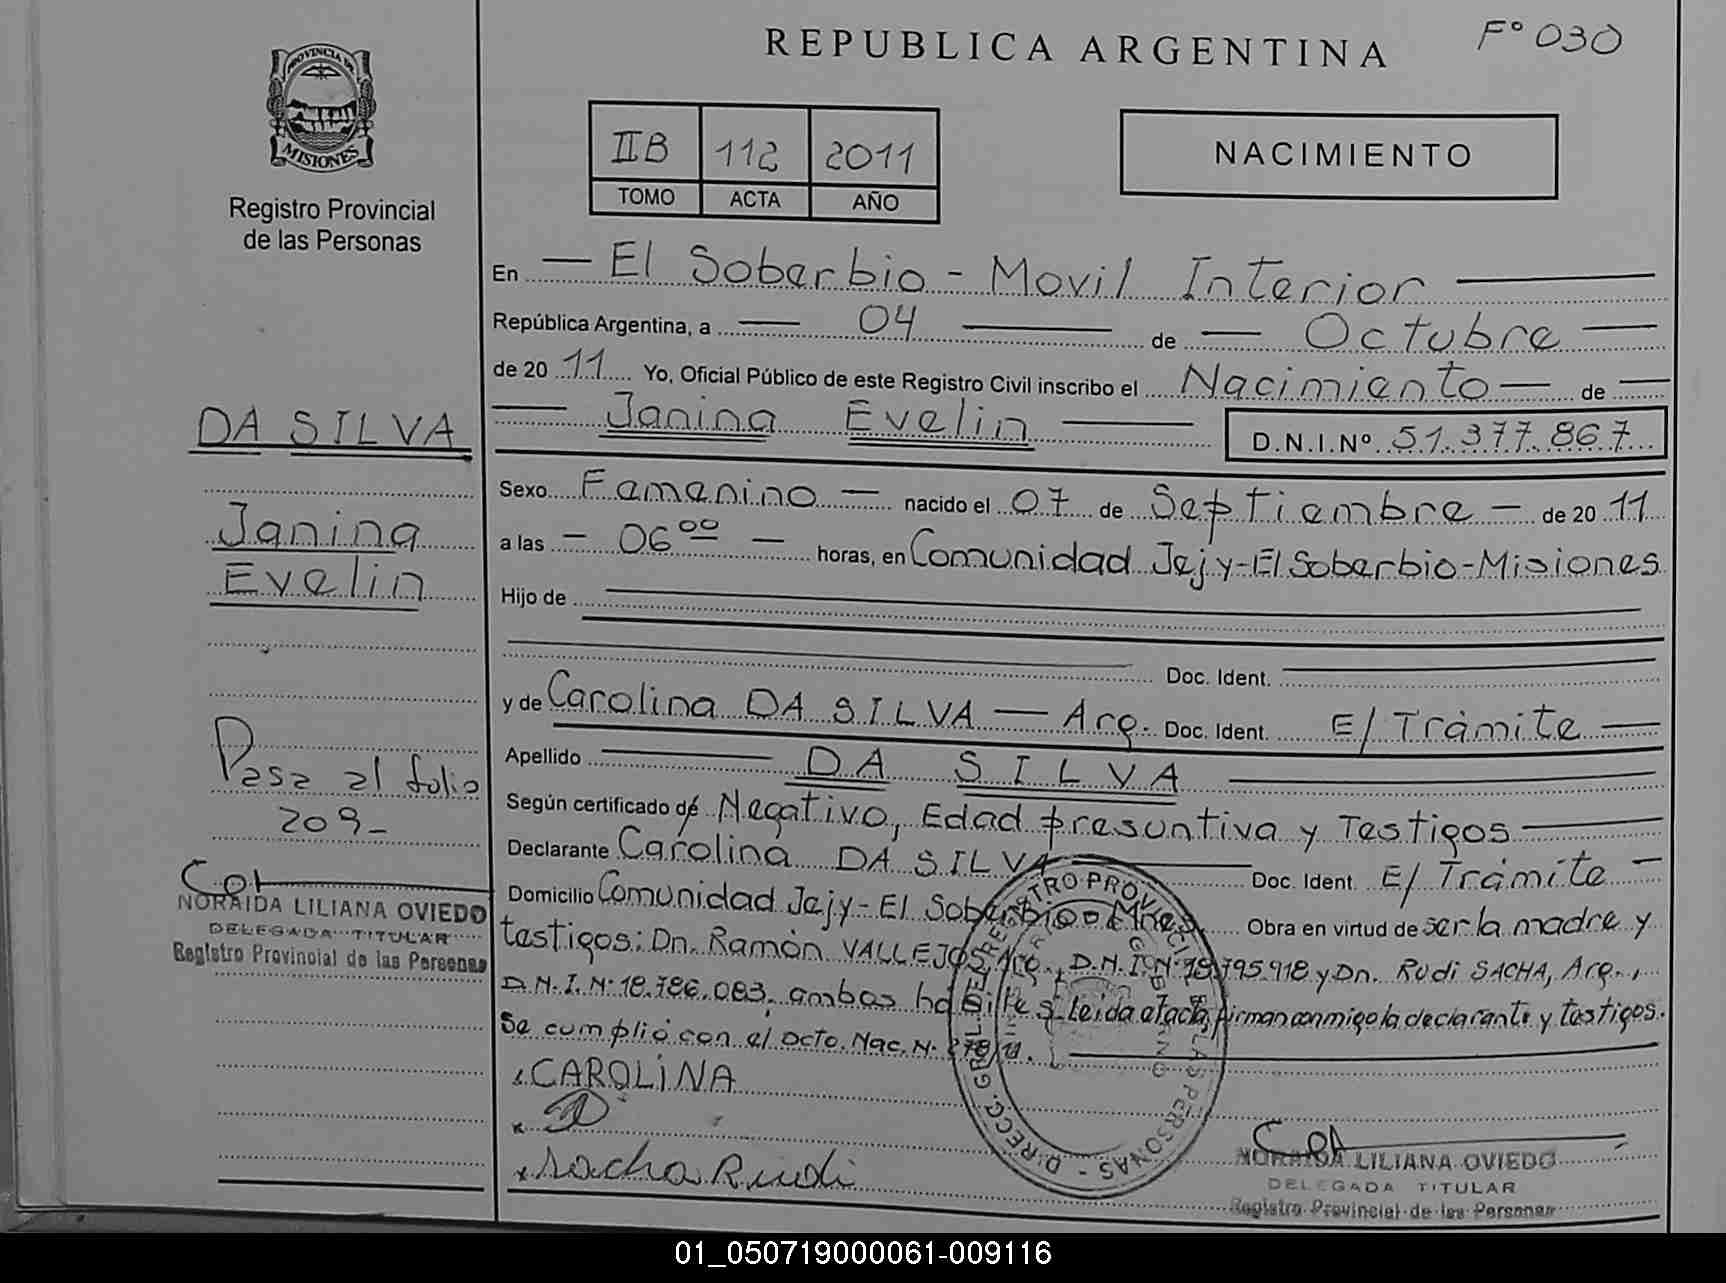 REPUBLICA ARGENTINA
Fº 030
PROVINCIA DE
MISIONES
Registro Provincial
de las Personas
IIB 112 2011
TOMO ACTA AÑO
NACIMIENTO
En — El Soberbio - Movil Interior —
República Argentina, a — 04 — de — Octubre —
de 20 11 Yo, Oficial Público de este Registro Civil inscribo el Nacimiento — de —
— Janina Evelin — D.N.I.Nº 51.377.867
DA SILVA
Janina
Evelin
Sexo Femenino — nacido el 07 de Septiembre — de 20 11
a las — 06 00 — horas, en Comunidad Jejy-El Soberbio-Misiones
Hijo de
Doc. Ident.
y de Carolina DA SILVA — Arg. Doc. Ident. E/ Tràmite —
Apellido — DA SILVA —
Según certificado de Negativo, Edad presuntiva y Testigos —
Declarante Carolina DA SILVA — Doc. Ident. E/ Tràmite —
Domicilio Comunidad Jejy-El Soberbio-Mnes, Obra en virtud de ser la madre y
testigos: Dn. Ramòn VALLEJOS, Arg., D.N.I.Nº 18.795.918 y Dn. Rudi SACHA, Arg.,
D.N.I.Nº 18.786.083, ambos habiles. Leida el acta, firman conmigo la declarante y testigos.
Se cumpliò con el Dcto. Nac. Nº 278/11. —
Pasa al folio
209-
NORAIDA LILIANA OVIEDO
DELEGADA TITULAR
Registro Provincial de las Personas
CAROLINA
Sacha Rudi
DIRECC. GRAL. DE REGISTRO PROVINCIAL DE LAS PERSONAS -
NORAIDA LILIANA OVIEDO
DELEGADA TITULAR
Registro Provincial de las Personas
01_050719000061-009116